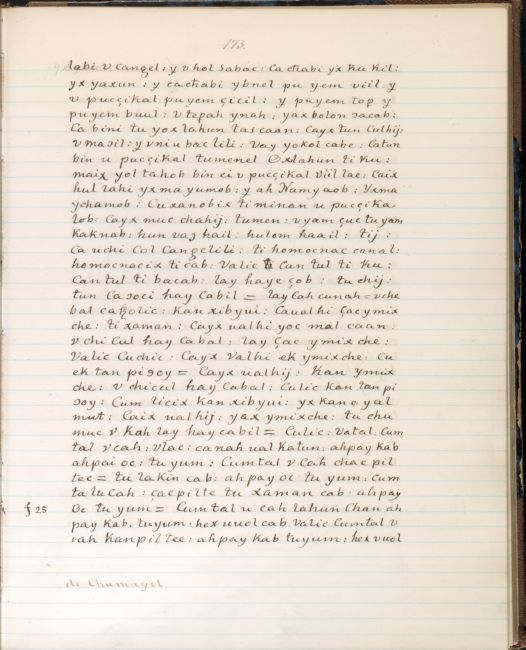 173.
labi v Cangel: y v hol Sabac: Ca chabi yx Ku Kil:
yx yaxun: y ca chabi ybnel pu yem viil y
v pucçikal pu yem çicil: y pu yem top y
pu yem buul: v tepah ynah: yax bolon ɔacab:
Ca bini tu yox lahun tas caan: Cayx tun Culhij:
v maɔil: y v ni u bac lili: Vay yokol cabe: Catun
bin u pucçikal tumenel Oxlahun ti ku:
maix yol tahob bin ci v pucçikal viil lae: Caix
hul lahi yx ma yumob: y ah Numyaob: Yxma
ychamob: Cuxanobix ti minan u pucçika
lob: Cayx muc chahij: tumen: v yam çuc tu yam
Kaknab: hun vaɔ hail: hulom haail: tij:
Ca uchi Col Cangelili: ti homocnac canal:
homocnacix ti cab: Valic Can tul ti ku:
Can tul ti bacab: lay haye çob: tu chij:
tun Ca ɔoci hay Cabil = lay Cah cunah = v che
bal catzolic: Kan xibyui: Caualhi çac ymix
che: ti xaman: Cayx ualhi yoc mal caan:
v chi Cul hay Cabal: lay çac ymix che:
Valic Cuchic: Cayx Valhi ek ymixche: Cu
ek tan piɔoy = Cayx ualhij: Kan ymix
che: v chicul hay Cabal: Culic Kan tan pi
ɔoy: Cum licix Kan xibyui: yx kan oyal
mut: Caix ualhij: yax ymixche: tu chu
muc v Kah lay hay cabil = Culic: Vatal. Cum
tal v cah: vlac: canah ual Katun: ahpay Kab
ahpai oc: tu yum: Cumtal v Cah chac pil
tec = tu lakin cab: ah pay oc tu yum: Cum
tal u Cah: çac pilte tu xaman cab: ah pay
f. 25 Oc tu yum = Cumtal u cah lahun Chan ah
pay kab. tuyum: hex uuol cab Valic Cumtal v
cah Kanpil tec: ah pay Kab tu yum: hex vuol
de Chumayel.